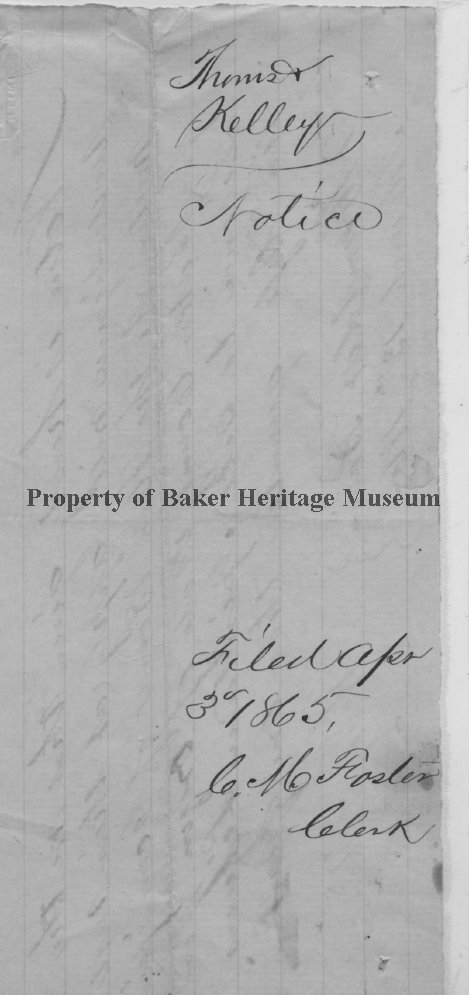 Thomas
Kelley
Notice
Property of Baker Heritage Museum
Filed Apr
3d 1865,
C. M. Foster
Clerk